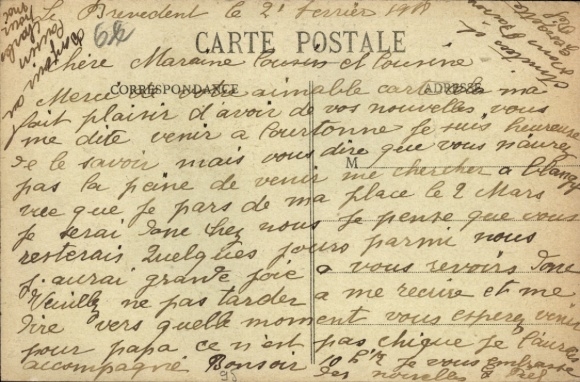 Le Brevedent le 21 février 1918
62
CARTE POSTALE
Chère Maraine Cousin et Cousine
CORRESPONDANCE
ADRESSE
Merci de votre aimable carte cela ma
fait plaisir d'avoir de vos nouvelles vous
me dite venir a Courtonne je suis heureuse
de le savoir mais vous dire que vous n'aurez
M
pas la peine de venir me chercher a Blangy
vue que je pars de ma place le 2 Mars
je serai donc chez nous je pense que vous
resterais quelques jours parmi nous
j'aurai grande joie a vous revoirs donc
Veuillez ne pas tarder a me recrire et me
dire vers quelle moment vous esperez venir
pour papa ce n'est pas chique je l'aurais
accompagné Bonsoir je vous embrasse
des nouvelles de
Bonjour
Cousin